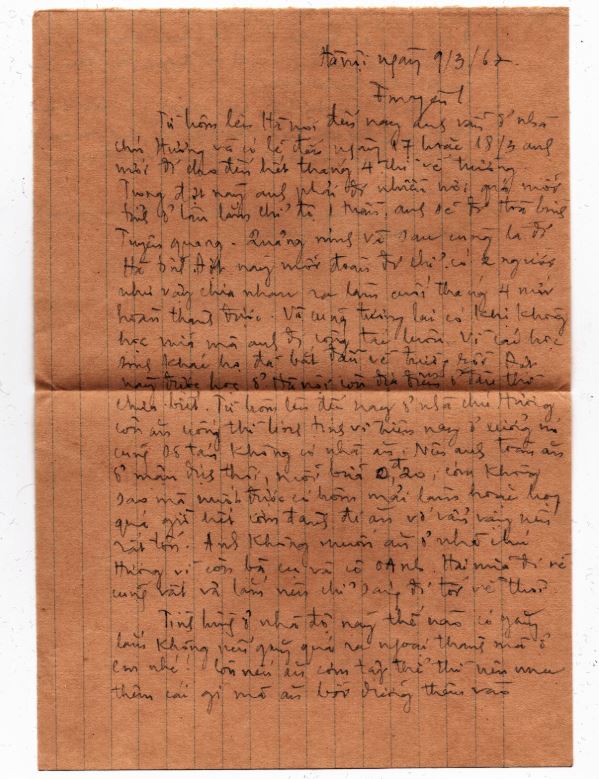 Hà nội ngày 9/3/62
Em yêu!
Từ hôm lên Hà nội đến nay anh vẫn ở nhà
chú Hường và có lẽ đến ngày 17 hoặc 18/3 anh
mới đi cho đến hết tháng 4 thì về trường
Trong đợt này anh phải đi nhiều nơi quá mỗi
tỉnh ở lâu lắm chỉ độ 1 tuần, anh sẽ đi Hoà bình
Tuyên quang. Quảng ninh và sau cùng là đi
Hà Đợt này mỗi đoàn đi chỉ có 2 người
như vậy chia nhau ra làm cuối tháng 4 mới
hoàn thành được. Và cũng tương lai có khi không
học nữa mà anh đi công tác luôn. Vì các học
sinh khác họ đã bắt đầu về trường rồi
này được học ở Hà nội còn địa điểm ở đâu thì
chưa biết. Từ hôm lên đến nay ở nhà chú Hường
còn ăn uống thì vì hiện nay ở xưởng
cũng không có nhà ăn. Nên anh toàn ăn
ở thôi, mỗi bữa 0đ20, cơm không
sao mà nuốt được có hôm mải làm hoặc
quá giờ hết cơm đành đi ăn vớ vẩn vậy nên
rất tốn. Anh không muốn ăn ở nhà chú
Hường vì còn bà cụ và cô Oanh. Hai nữa đi về
cũng vất vả lắm nên chỉ sáng đi tối về thôi.
Tình hình ở nhà độ này thế nào có gay
lắm không nếu gay quá ra ngoài thành mà ở
em nhé! Còn nếu ăn cơm tập thể thì nên mua
thêm cái gì mà ăn bồi dưỡng thêm vào